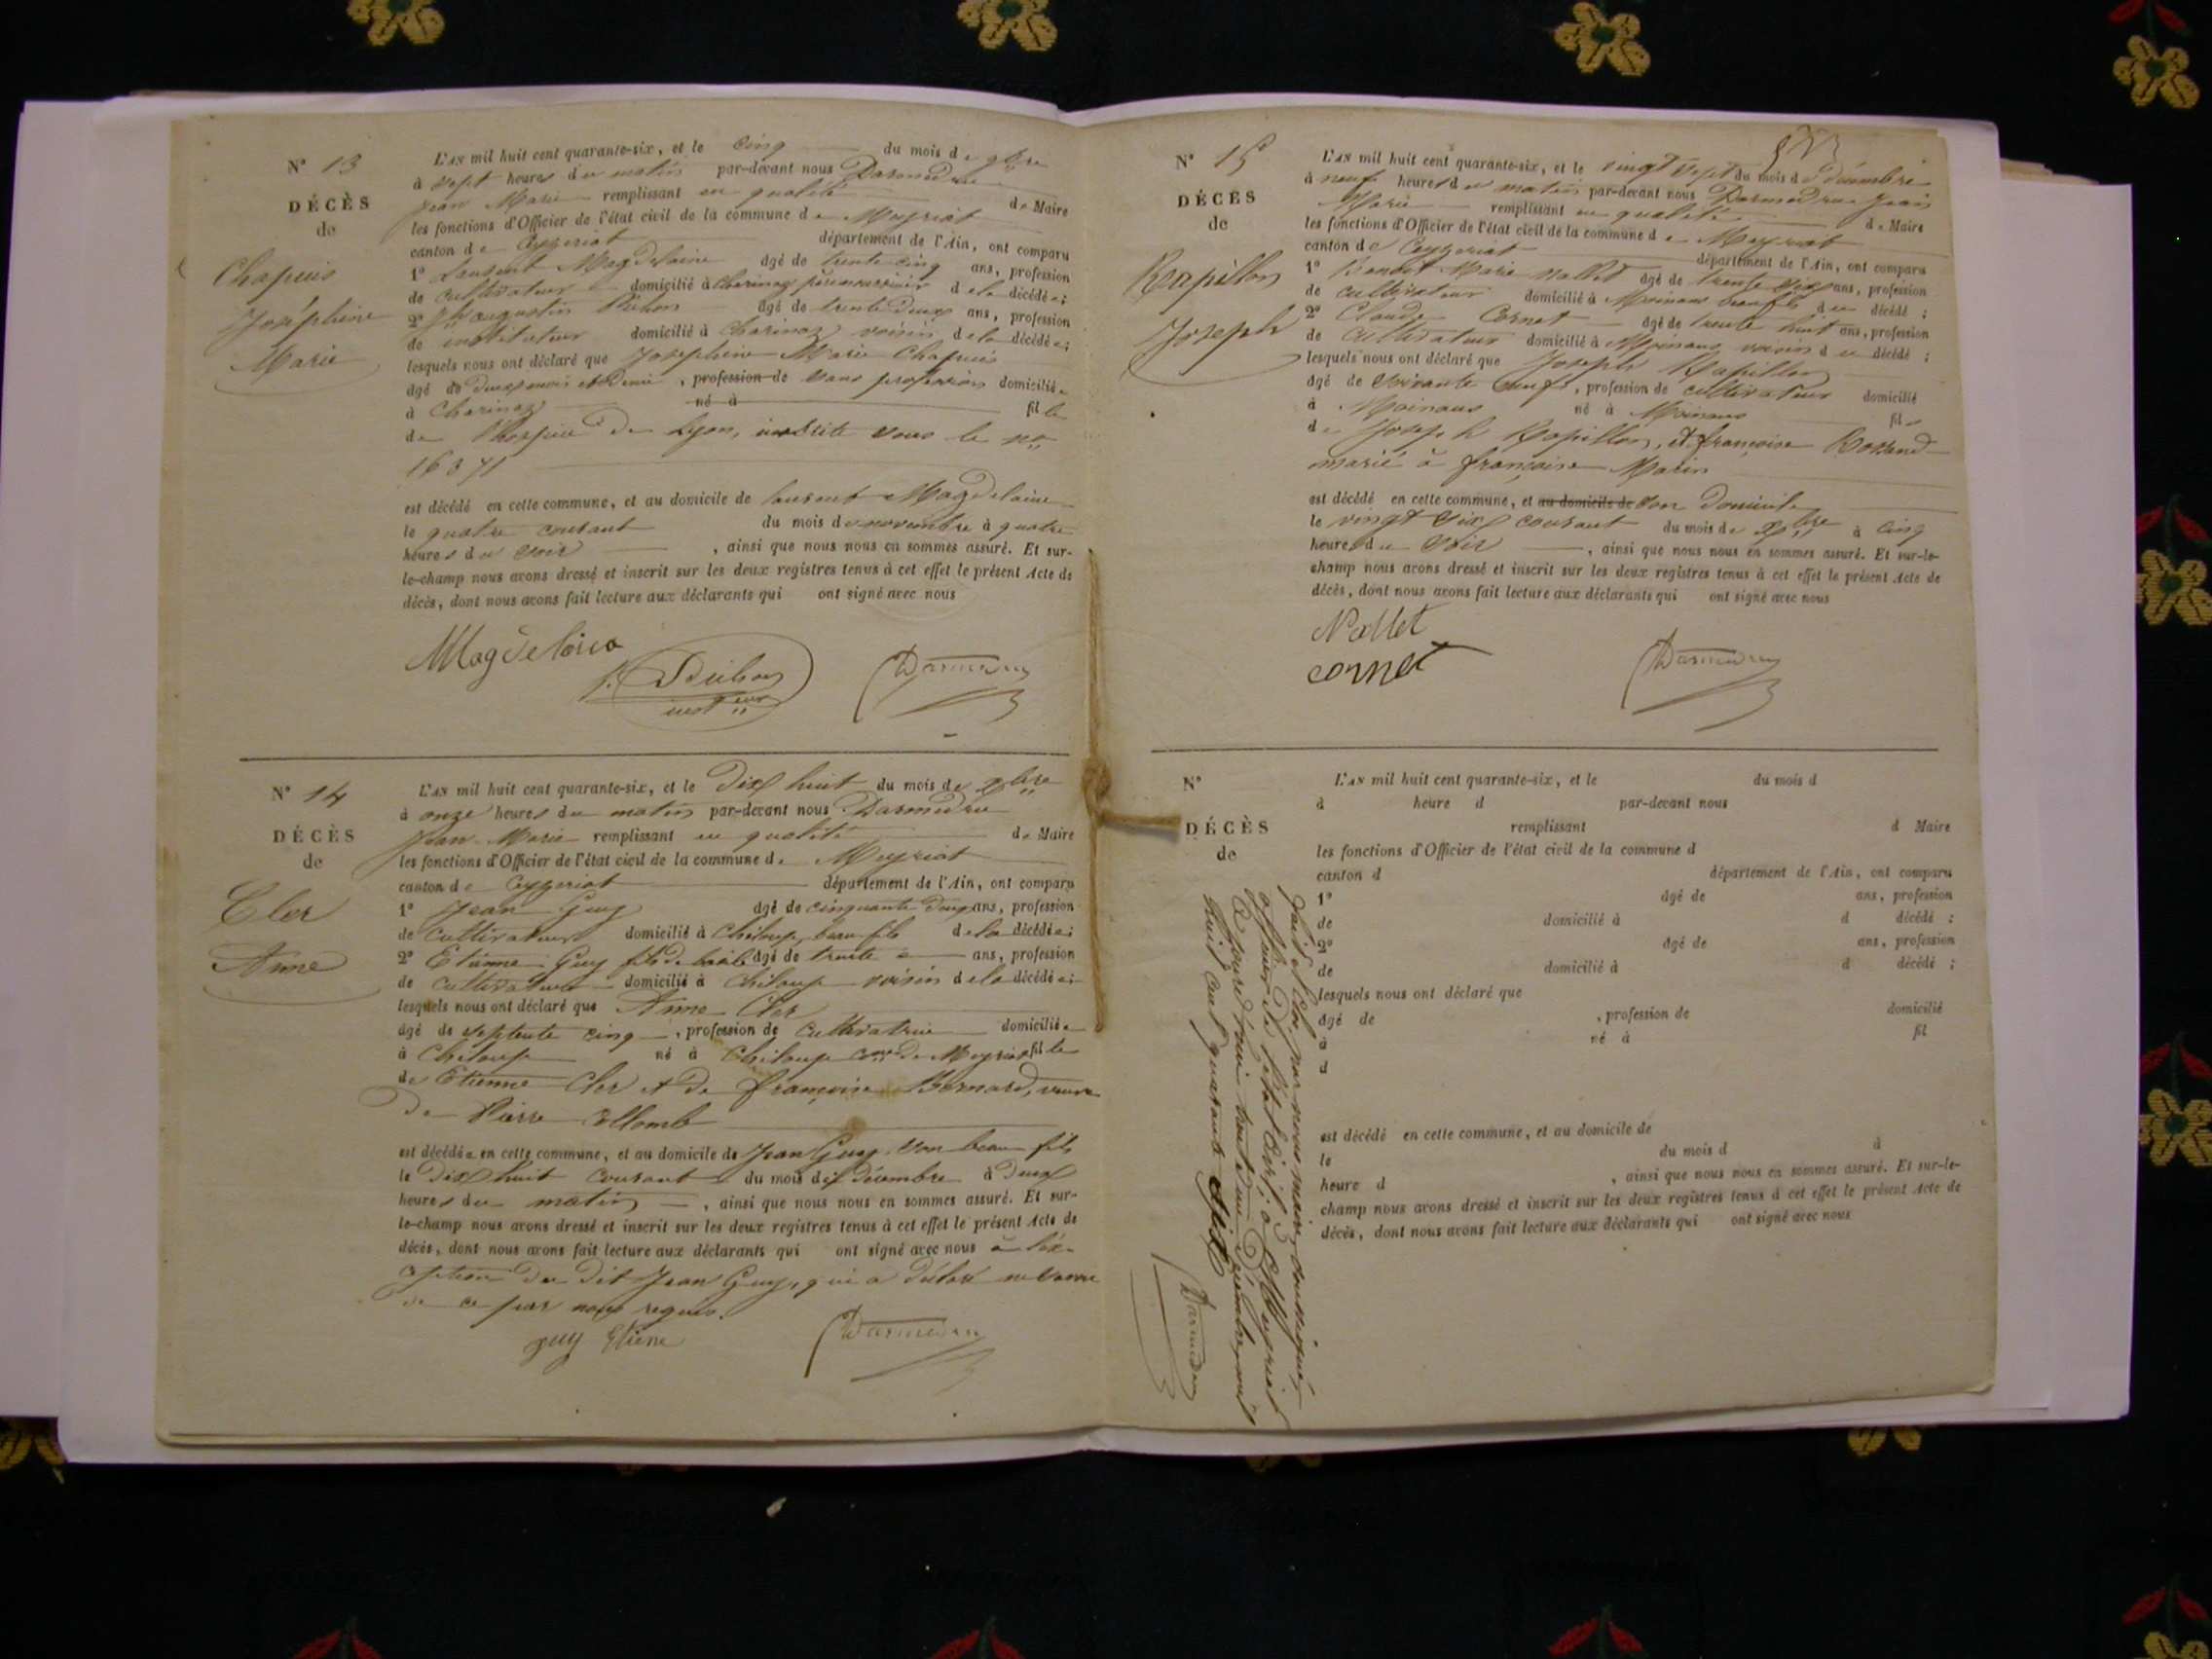 N° 13
DÉCÈS
de
Chapuis
Joséphine
Marie
L'AN mil huit cent quarante-six, et le cinq du mois de 9bre
à sept heures du matin par-devant nous Darmedru
Jean Marie remplissant en qualité de Maire
les fonctions d'Officier de l'état civil de la commune de Meyriat
canton de Ceyzeriat département de l'Ain, ont comparu
1° Laurent Magdelaine âgé de trente cinq ans, profession
de cultivateur domicilié à Charinaz père nourricier de la décédée;
2° augustin âgé de trente deux ans, profession
de instituteur domicilié à Charinaz voisin de la décédée;
lesquels nous ont déclaré que Josephine Marie Chapuis
âgé de deux mois et demi, profession de sans profession domiciliée
à Charinaz né à fille
de l'hospice de Lyon, inscrite sous le no
16371
est décédé en cette commune, et au domicile de laurent Magdelaine
le quatre courant du mois de novembre à quatre
heures du soir, ainsi que nous nous en sommes assuré. Et sur-
le-champ nous avons dressé et inscrit sur les deux registres tenus à cet effet le présent Acte de
décès, dont nous avons fait lecture aux déclarants qui ont signé avec nous
Magdelaine
Darmedru
N° 14
DÉCÈS
de
Cler
Anne
L'AN mil huit cent quarante-six, et le dix huit du mois de Xbre
à onze heures du matin par-devant nous Darmedru
Jean Marie remplissant en qualité de Maire
les fonctions d'Officier de l'état civil de la commune de Meyriat
canton de Ceyzeriat département de l'Ain, ont comparu
1° Jean Guy âgé de cinquante deux ans, profession
de Cultivateur domicilié à Chiloup, beau fils de la décédée;
2° Etienne Guy fils de âgé de trente ans, profession
de cultivateur domicilié à Chiloup voisin de la décédée;
lesquels nous ont déclaré que Anne Cler
âgé de septente cinq, profession de cultivatrice domiciliée
à Chiloup né à Chiloup cne de Meyriat fille
de Etienne Cler et de françoise Bernard, veuve
de Pierre Collomb
est décédée en cette commune, et au domicile de Jean Guy, son beau fils
le dix huit courant du mois de décembre à deux
heures du matin, ainsi que nous nous en sommes assuré. Et sur-
le-champ nous avons dressé et inscrit sur les deux registres tenus à cet effet le présent Acte de
décès, dont nous avons fait lecture aux déclarants qui ont signé avec nous à l'ex-
ception du dit Jean Guy, qui a déclaré ne savoir
de ce par nous requis.
guy Etiene
Darmedru
N° 15
DÉCÈS
de
Rapillon
Joseph
L'AN mil huit cent quarante-six, et le vingt sept du mois de décembre
à neuf heures du matin par-devant nous Darmedru Jean
Marie remplissant en qualité de Maire
les fonctions d'Officier de l'état civil de la commune de Meyriat
canton de Ceyzeriat département de l'Ain, ont comparu
1° Benoit Marie Nallet âgé de trente six ans, profession
de cultivateur domicilié à Moinans beau fils du décédé;
2° Claude Cornet âgé de trente huit ans, profession
de Cultivateur domicilié à Moinans voisin du décédé;
lesquels nous ont déclaré que Joseph Rapillon
âgé de soixante neuf, profession de cultivateur domicilié
à Moinans né à Moinans fils
de Joseph Rapillon, et françoise
marié à françoise Morin
est décédé en cette commune, et au domicile de son domicile
le vingt six courant du mois de Xbre à cinq
heures du soir, ainsi que nous nous en sommes assuré. Et sur-le-
champ nous avons dressé et inscrit sur les deux registres tenus à cet effet le présent Acte de
décès, dont nous avons fait lecture aux déclarants qui ont signé avec nous
Nallet
cornet
Darmedru
N°
DÉCÈS
de
L'AN mil huit cent quarante-six, et le du mois d
à heure d par-devant nous
remplissant d Maire
les fonctions d'Officier de l'état civil de la commune d
canton d département de l'Ain, ont comparu
1° âgé de ans, profession
de domicilié à d décédé;
2° âgé de ans, profession
de domicilié à d décédé;
lesquels nous ont déclaré que
âgé de , profession de domicilié
à né à fil
d
est décédé en cette commune, et au domicile de
le du mois d à
heure d , ainsi que nous nous en sommes assuré. Et sur-le-
champ nous avons dressé et inscrit sur les deux registres tenus à cet effet le présent Acte de
décès, dont nous avons fait lecture aux déclarants qui ont signé avec nous
fait et clos par nous maire, soussigné,
officier de l'état civil, à Meyriat
aujourd'hui trente un décembre, mil
huit cent quarante six
Darmedru